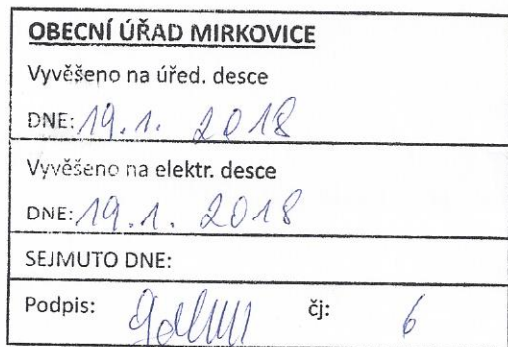 OBECNÍ ÚŘAD MIRKOVICE
Vyvěšeno na úřed. desce
DNE: 19.1. 2018
Vyvěšeno na elektr. desce
DNE: 19.1. 2018
SEJMUTO DNE:
Podpis: čj: 6